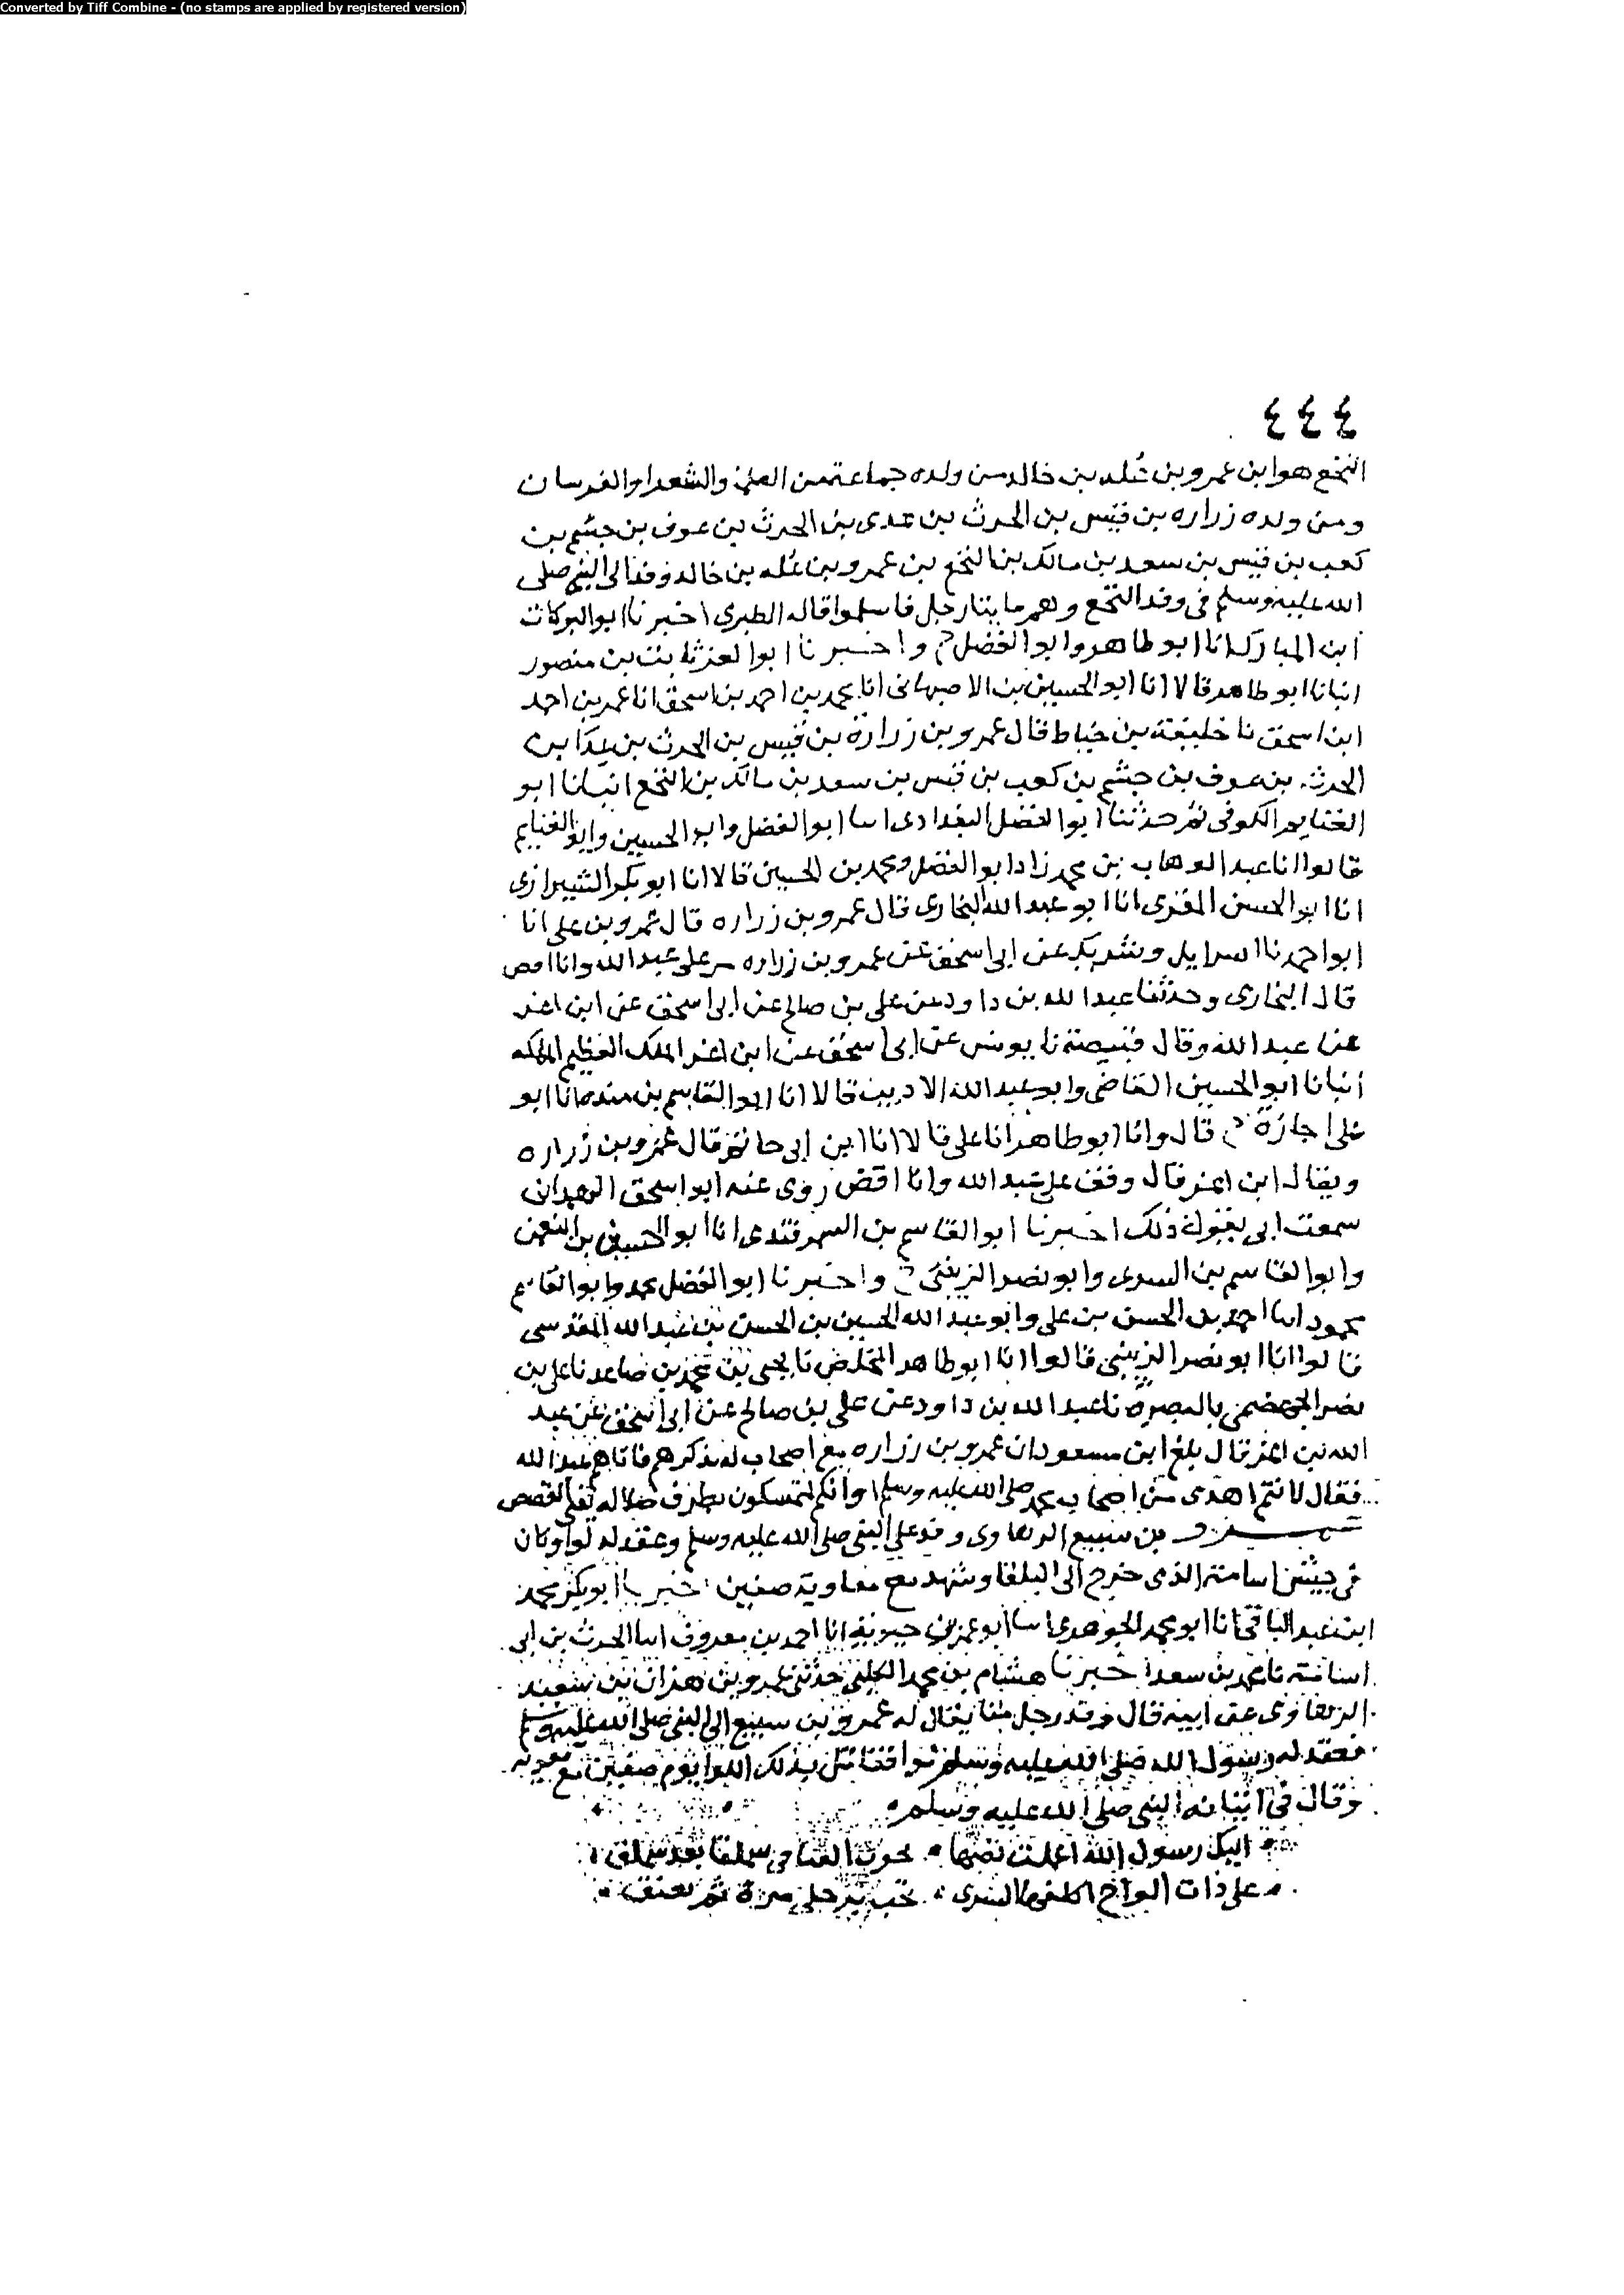 Converted by Tiff Combine - (no stamps are applied by registered version)
٤٤٤
النخع هو ابن عمرو بن عُله بن خالد من ولده جماعة من العلماء والشعرا والفرسان
ومن ولده زراره بن قيس بن الحرث بن عدى بن الحرث بن عوف بن جشم بن
كعب بن قيس بن سعد بن مالك بن النخع بن عمرو بن عُله بن خالد وفد الى النبي صلى
الله عليه وسلم في وفد النخع وهم مايتا رجل فاسلموا قاله الطبري اخبرنا ابو البركات
ابن المبارك انا ابو طاهر وابو الفضل ح واخبرنا ابو العز ثابت بن منصور
انبانا ابو طاهر قالا انا ابو الحسين بن الاصبهاني انا محمد بن احمد بن اسحق انا عمر بن احمد
ابن اسحق نا خليفة بن خياط قال عمرو بن زرارة بن قيس بن الحرث بن عدا بن
الحرث بن عوف بن جشم بن كعب بن قيس بن سعد بن مالك بن النخع انبانا ابو
الغنايم الكوفي ثم حدثنا ابو الفضل البغدادي انا ابو الفضل وابو الحسين وابو الغنايم
قالوا انا عبد الوهاب بن محمد زاد ابو الفضل ومحمد بن الحسين قالا انا ابو بكر الشيرازي
انا ابو الحسن المقري انا ابو عبد الله البخاري قال عمرو بن زراره قال عمرو بن على انا
ابو احمد نا اسرايل وشريك عن ابى اسحق عن عمرو بن زراره مر على عبد الله وانا اقص
قال البخارى وحدثنا عبد الله بن داود عن على بن صالح عن ابى اسحق عن ابن اعز
عن عبد الله وقال قبيصة نا يونس عن ابى اسحق عن ابن اعز الملك العظيم
انبانا ابو الحسين القاضى وابو عبد الله الاديب قالا انا ابو القاسم بن منده انا ابو
على اجازة ح قال وانا ابو طاهر انا على قالا انا ابن ابى حاتم قال عمرو بن زراره
ويقال ابن اعز قال وقف على عبد الله وانا اقص روى عنه ابو اسحق الهمدانى
سمعت ابى يقول ذلك اخبرنا ابو القاسم بن السمرقندى انا ابو الحسين بن النقور
وابو القاسم بن البسرى وابو نصر الزينبى ح واخبرنا ابو الفضل محمد وابو القاسم
محمود ابنا احمد بن الحسن بن على وابو عبد الله الحسين بن الحسن بن عبد الله المقدسى
قالوا انا ابو نصر الزينبى قالوا انا ابو طاهر المخلص نا يحيى بن محمد بن صاعد نا على بن
نصر الجهضمى بالبصرة نا عبد الله بن داود عن على بن صالح عن ابى اسحق عن عبد
الله بن اعز قال بلغ ابن مسعود ان عمرو بن زراره مع اصحاب له يذكرهم فاتاهم عبد الله
فقال لانتم اهدى من اصحاب محمد صلى الله عليه وسلم او انكم لتمسكون بطرف ضلاله يعنى القصص
عمرو بن سبيع الرهاوى وفد على النبى صلى الله عليه وسلم وعقد له لوا وكان
فى جيش اسامة الذى خرج الى البلقا وشهد مع معاوية صفين اخبرنا ابو بكر محمد
ابن عبد الباقى انا ابو محمد الجوهرى انا ابو عمر بن حيوية انا احمد بن معروف انا الحرث بن ابى
اسامة نا محمد بن سعد اخبرنا هشام بن محمد الكلبى حدثنى عمرو بن هزان بن سعيد
الرهاوى عن ابيه قال وفد رجل منا يقال له عمرو بن سبيع الى النبى صلى الله عليه وسلم
فعقد له رسول الله صلى الله عليه وسلم لوا فقاتل بذلك اللوا يوم صفين مع معوية
وقال فى اتيانه النبى صلى الله عليه وسلم
اليك رسول الله اعملت نصها تجوب الفيافى سملقا بعد سملق
على ذات الواح اكلفها السرى تخب برحلى مرة ثم تعنق